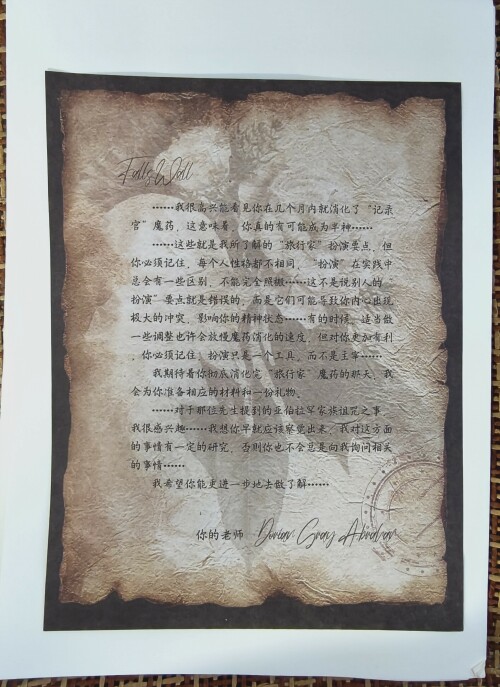 Falls Wall
……我很高兴能看见你在几个月内就消化了“记录
官”魔药，这意味着，你真的有可能成为半神……
……这些就是我所了解的“旅行家”扮演要点，但
你必须记住，每个人性格都不相同，“扮演”在实践中
总会有一些区别，不能完全照搬……这不是说别人的“
扮演”要点就是错误的，而是它们可能导致你内心出现
极大的冲突，影响你的精神状态……有的时候，适当做
一些调整也许会放慢魔药消化的速度，但对你更加有利
，你必须记住，扮演只是一个工具，而不是主宰……
我期待着你彻底消化完“旅行家”魔药的那天，我
会为你准备相应的材料和一份礼物。
……对于那位先生提到的亚伯拉罕家族诅咒之事，
我很感兴趣……我想你早就应该察觉出来，我对这方面
的事情有一定的研究，否则你也不会总是向我询问相关
的事情……
我希望你能更进一步地去做了解……
你的老师 Dorian Gray Abraham